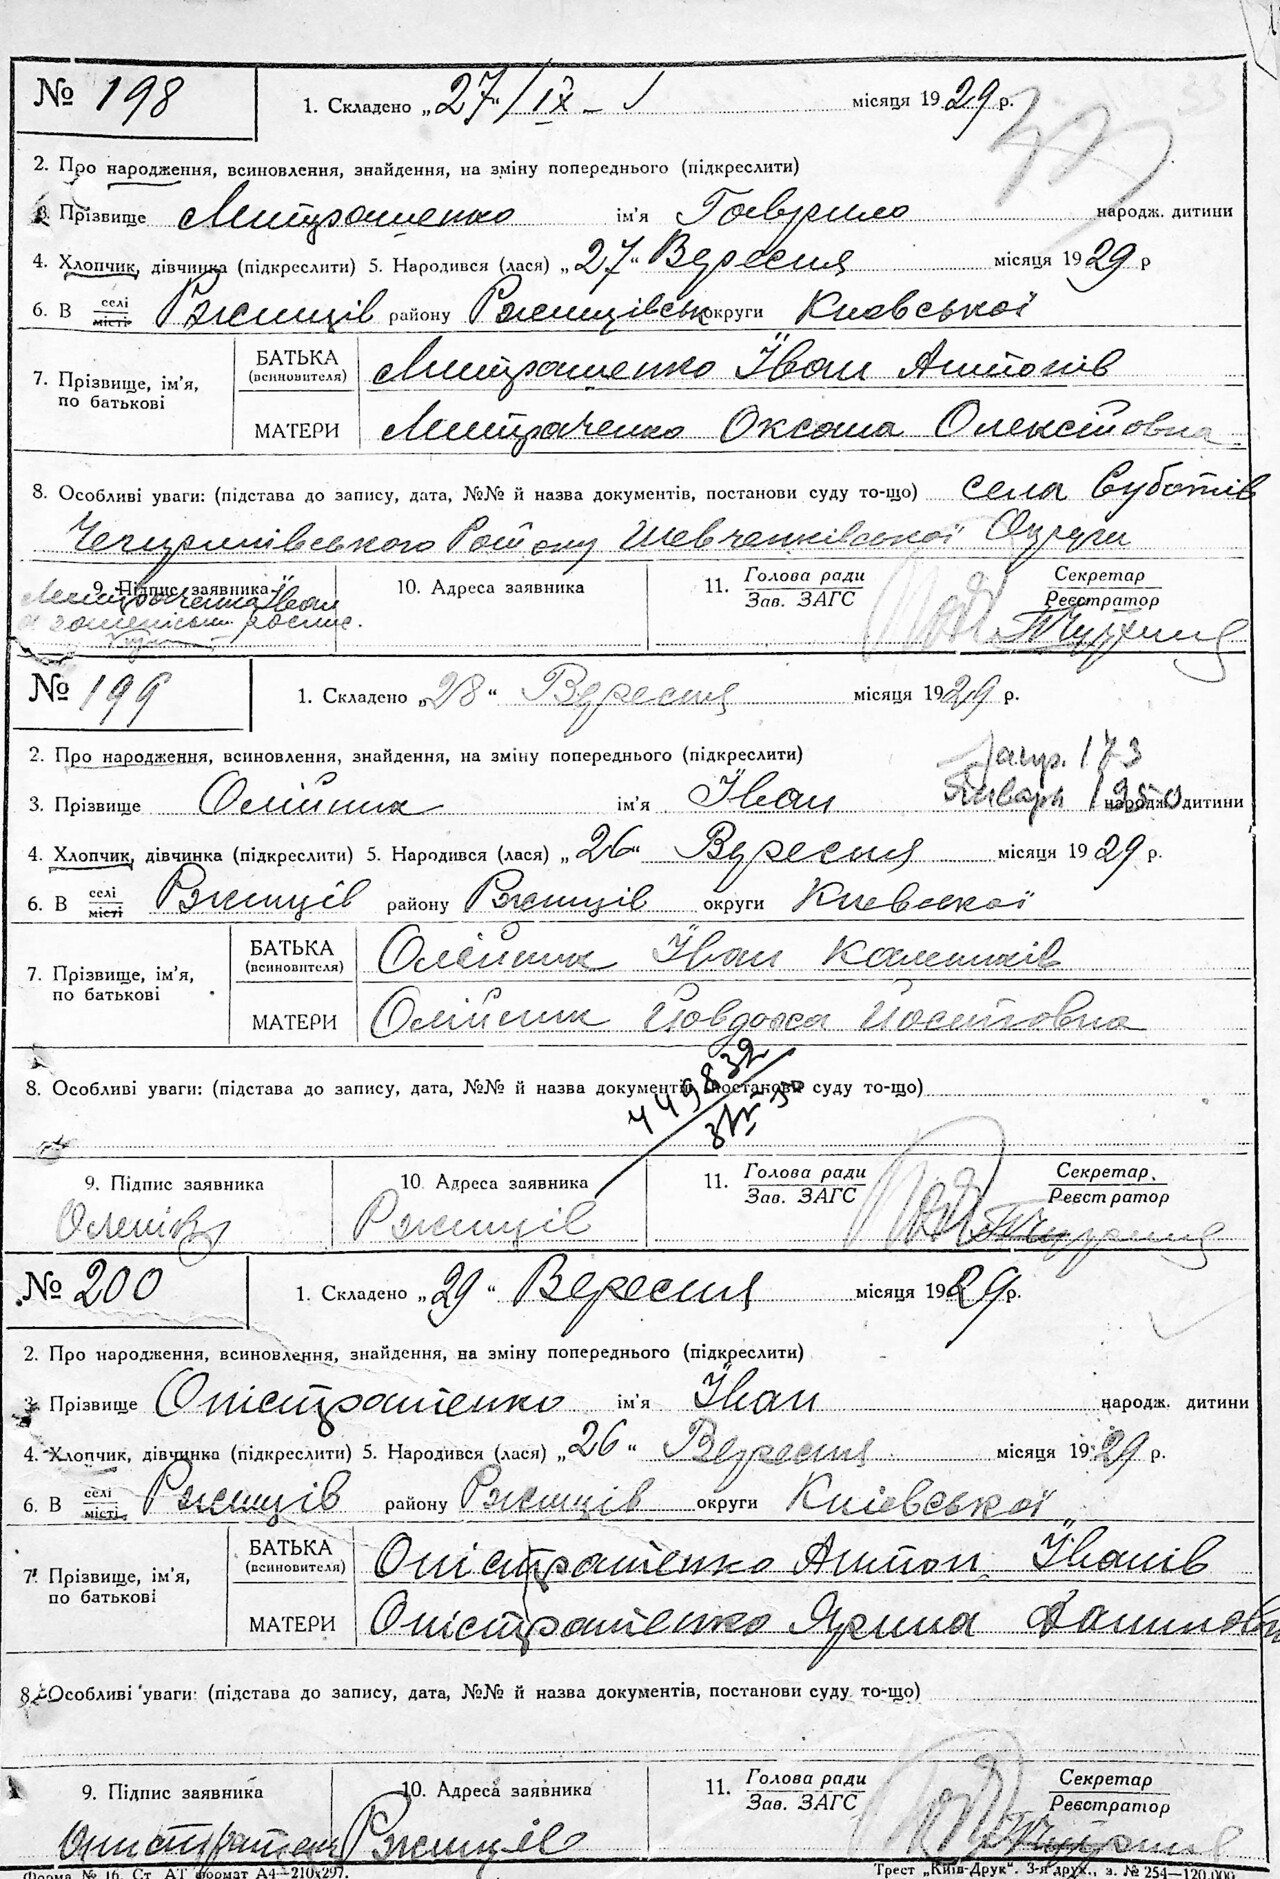 № 198 1. Складено „27“/IX- місяця 1929 р.
2. Про народження, всиновлення, знайдення, на зміну попереднього (підкреслити)
3. Прізвище Митрашенко ім'я Гаврило народж. дитини
4. Хлопчик, дівчинка (підкреслити) 5. Народився (лася) „27“ Вересня місяця 1929 р
6. В селі місті Ржищів району Ржищівськ округи Киевської
7. Прізвище, ім'я, по батькові
БАТЬКА (всиновителя) Митрашенко Іван Антонів
МАТЕРИ Митраченко Оксана Олексіївна
8. Особливі уваги: (підстава до запису, дата, №№ й назва документів, постанови суду то-що) села Суботів
Чегиринівського Району Шевченківської Округи
9. Підпис заявника 10. Адреса заявника 11. Голова ради Зав. ЗАГС Секретар Реєстратор
Митраченко Іван
№ 199 1. Складено „28“ Вересня місяця 1929 р.
2. Про народження, всиновлення, знайдення, на зміну попереднього (підкреслити)
173
3. Прізвище Олійник ім'я Іван Январь 1950 народж. дитини
4. Хлопчик, дівчинка (підкреслити) 5. Народився (лася) „26“ Вересня місяця 1929 р.
6. В селі місті Ржищів району Ржищів округи Киевської
7. Прізвище, ім'я, по батькові
БАТЬКА (всиновителя) Олійник Іван
МАТЕРИ Олійник Йовдоха
449832
8. Особливі уваги: (підстава до запису, дата, №№ й назва документів, постанови суду то-що)
9. Підпис заявника 10. Адреса заявника 11. Голова ради Зав. ЗАГС Секретар, Реєстратор
Ржищів
№ 200 1. Складено „29“ Вересня місяця 1929 р.
2. Про народження, всиновлення, знайдення, на зміну попереднього (підкреслити)
3. Прізвище Оністратенко ім'я Іван народж. дитини
4. Хлопчик, дівчинка (підкреслити) 5. Народився (лася) „26“ Вересня місяця 1929 р.
6. В селі місті Ржищів району Ржищів округи Киівської
7. Прізвище, ім'я, по батькові
БАТЬКА (всиновителя) Оністратенко Антон Іванів
МАТЕРИ Оністратенко Ярина
8. Особливі уваги: (підстава до запису, дата, №№ й назва документів, постанови суду то-що)
9. Підпис заявника 10. Адреса заявника 11. Голова ради Зав. ЗАГС Секретар Реєстратор
Ржищів
Форма № 16. Ст. АТ формат А4—210х297. Трест „Київ-Друк“. 3-я друк., з. № 254—120.000